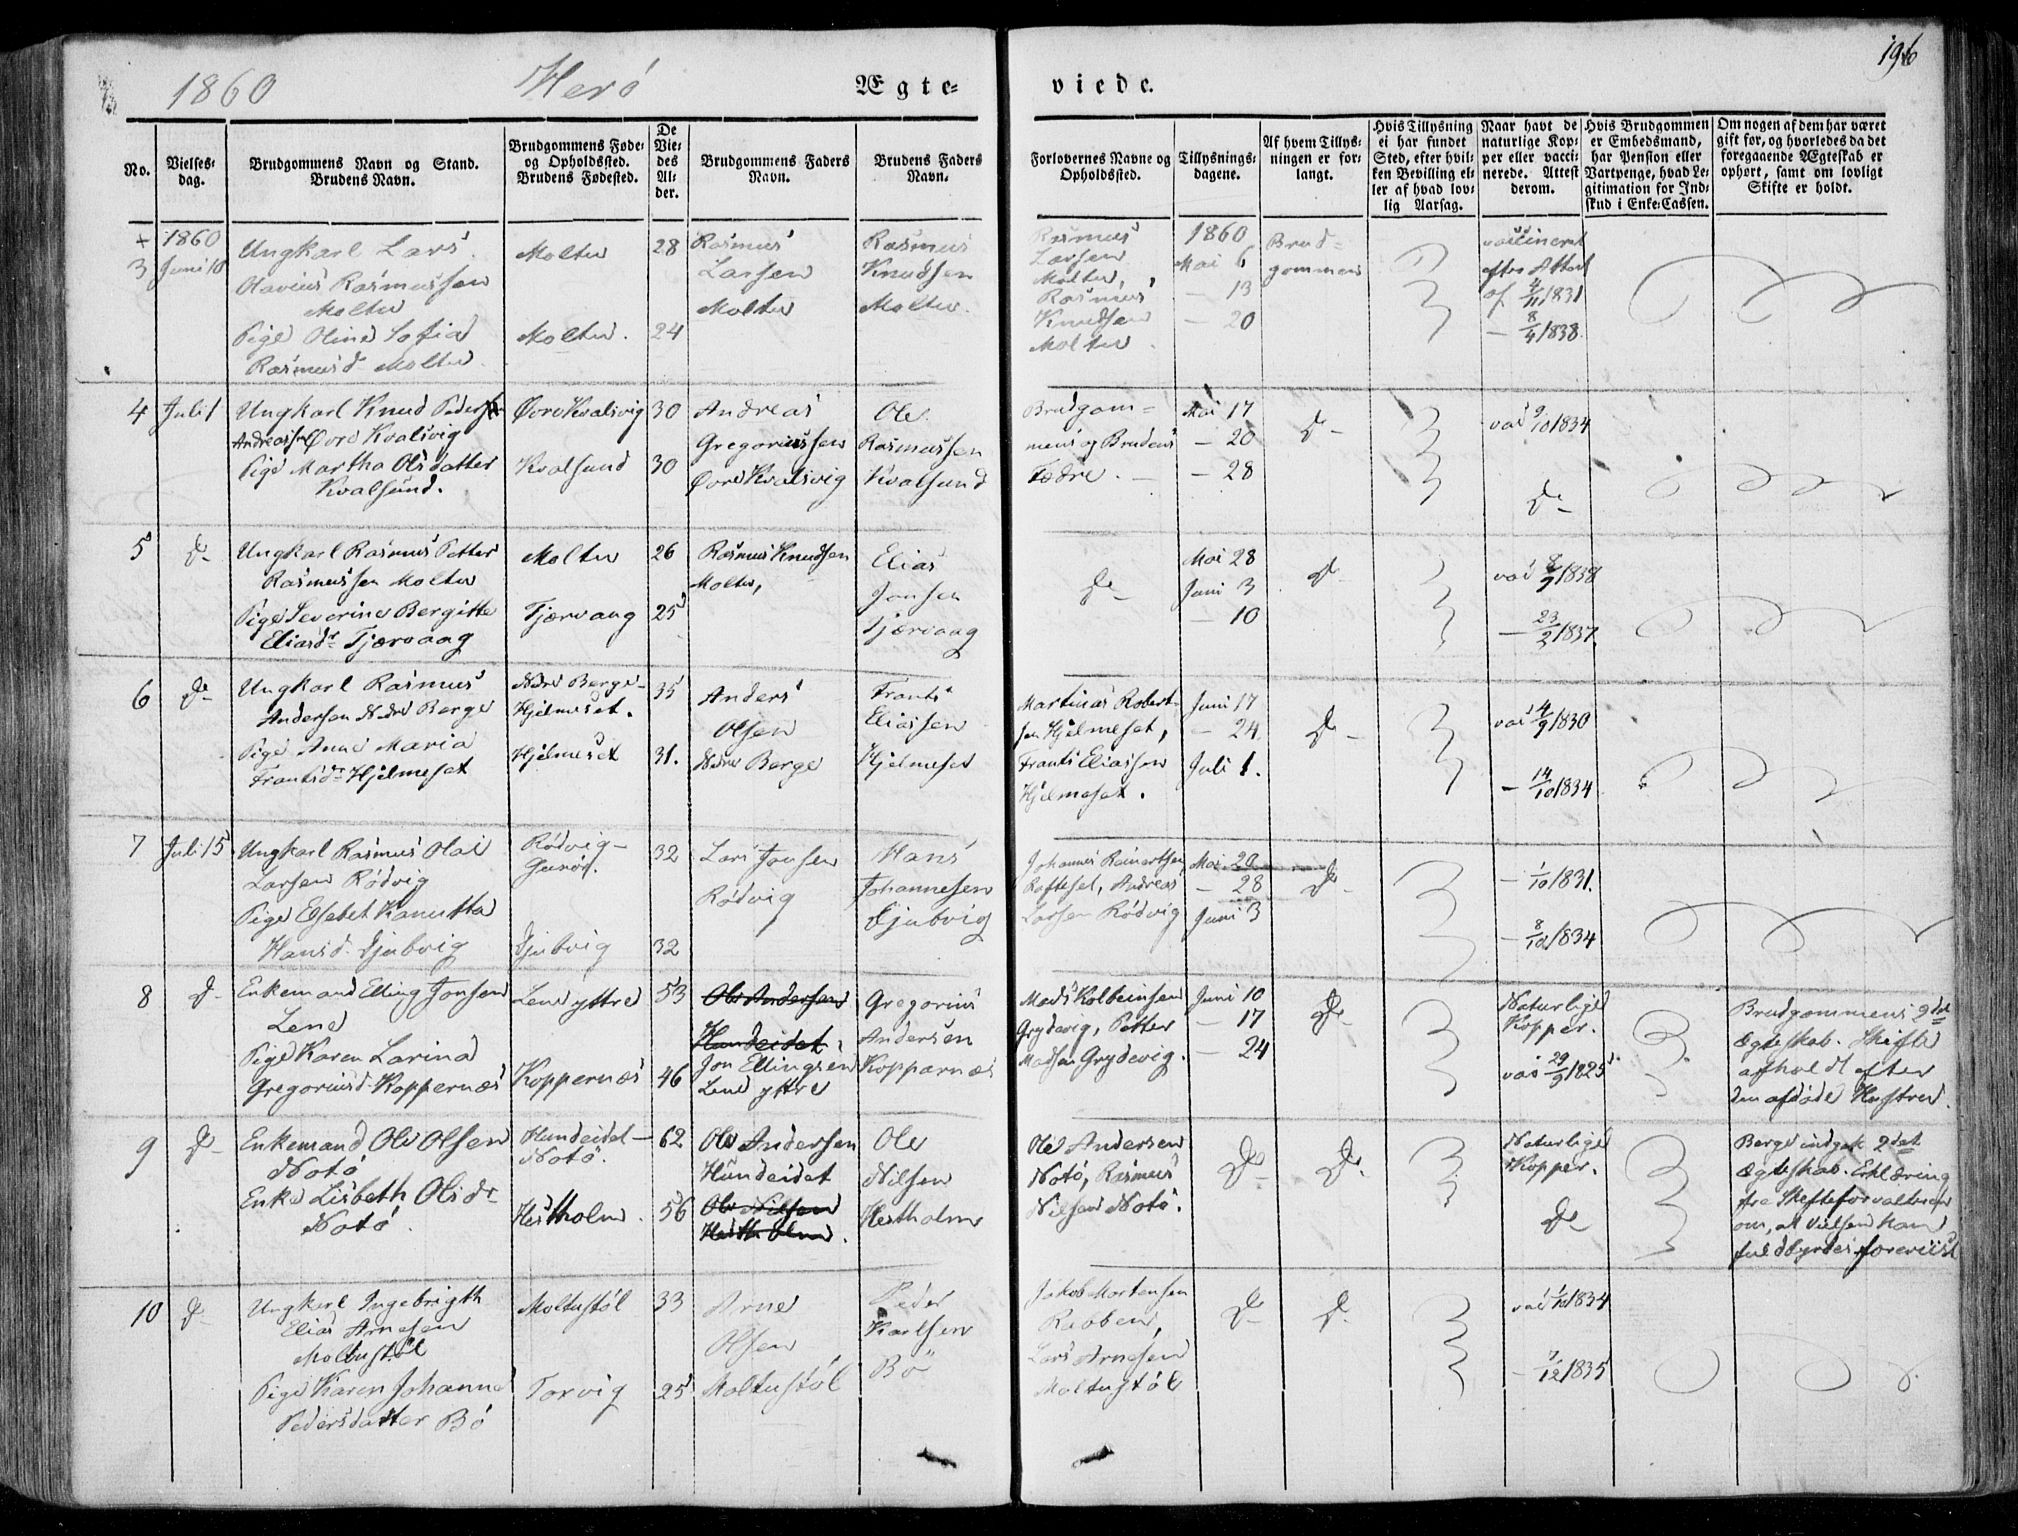 1860 Herö Ægte=
viede. 196
No.
Vielses=
dag.
Brudgommens Navn og Stand.
Brudens Navn.
Brudgommens Føde=
og Opholdssted.
Brudens Fødested.
De
Vie=
des
Al=
der.
Brudgommens Faders
Navn.
Brudens Faders
Navn.
Forlovernes Navne og
Opholdssted.
Tillysnings=
dagene.
Af hvem Tillys=
ningen er for=
langt.
Hvis Tillysning
ei har fundet
Sted, efter hvil=
ken Bevilling el=
ler af hvad lov=
lig Aarsag.
Naar havt de
naturlige Kop=
per eller vacci=
nerede. Attest
derom.
Hvis Brudgommen
er Embedsmand,
har Pension eller
Vartpenge, hvad Le=
gitimation for Ind=
skud i Enke=Cassen.
Om nogen af dem har været
gift før, og hvorledes da det
foregaaende Ægteskab er
ophørt, samt om lovligt
Skifte er holdt.
+
3
1860
Juni 10
Ungkarl Lars
Olavius Rasmussen
Moltu
Pige Oline Sofia
Rasmusd Moltu
Moltu
Moltu.
28
24
Rasmus
Larsen
Moltu
Rasmus
Knudsen
Moltu.
Rasmus
Larsen
Moltu,
Rasmus
Knudsen
Moltu
1860
Mai 6
— 13
— 20
Brud=
gommen
vaccineret
efter Attest
af 4/11 1831
— 8/4 1838.
4
Juli 1
Ungkarl Knud Peder
Andreassen Øvre Kvalsvig
Pige Martha Olsdatter
Kvalsund.
Øvre Kvalsvig
Kvalsund
30
30
Andreas
Gregoriussen
Øvre Kvalsvig
Ole
Rasmussen
Kvalsund
Brudgom=
mens og Brudens
Fædre. —
Mai 17
— 20
— 28
D—
vac 9/10 1834
D—
5
D—
Ungkarl Rasmus Petter
Rasmussen Moltu
Pige Severine Bergitte
Eliasdr Tjærvaag
Moltu
Tjærvaag
26
25
Rasmus Knudsen
Moltu,
Elias
Jonsen
Tjærvaag
D—
Mai 28
Juni 3
— 10
D—
vac 8/9 1838
— 23/2 1837.
6
D—
Ungkarl Rasmus
Andersen Nedre Berge
Pige Anne Maria
Frantsdr Hjelmeset
Nedre Berge—
Hjelmeset.
Hjelmeset
35
31.
Anders
Olsen
Nedre Berge
Frants
Eliassen
Hjelmeset
Martinus Robert=
sen Hjelmeset,
Frants Eliassen
Hjelmeset.
Juni 17
— 24
Juli 1.
D—
vac 4/9 1830
— 14/10 1834
7
Juli 15
Ungkarl Rasmus Olai
Larsen Rödvig
Pige Elsebet
Hansd. Djubvig
Rödvig—
Djubvig
32
32
Lars Jonsen
Rödvig
Hans
Johannesen
Djubvig
Johannes Reinertsen
Rafteset, Andreas
Larsen Rödvig
Mai 20
— 28
Juni 3
D—
— 1/10 1831.
— 8/12 1834
8
D—
Enkemand Elling Jonsen
Lene
Pige Karen Larina
Gregoriusd. Koppernæs
Lene yttre
Koppernæs
53
46
Ole Andersen
Hundeidet
Jon Ellingsen
Lene yttre
Gregorius
Andersen
Kopparnæs
Mads Kolbeinsen
Grydevig, Petter
Madsen Grydevig.
Juni 10
— 17
— 24
D—
Naturlige
Kopper.
vac 29/9 1825
Brudgommens 2det
Ægteskab. Skifte
afholdt efter
den afdöde Hustru.
9
D—
Enkemand Ole Olsen
Notö
Enke Lisbeth Olsdr
Notö
Hundeidet—
Notö.
Hestholm.
62
56
Ole Andersen
Hundeidet
Ole Nilsen
Hestholm.
Ole
Nilsen
Hestholm
Ole Andersen
Notö, Rasmus
Nilsen Notö.
D—
D—
Naturlige
Kopper.
D—
Begge indgik 2det
Ægteskab. Erklæring
fra Skifteforvalteren
om, at Vielsen kan
fuldbyrdes foreviist
10
D—
Ungkarl Ingebrigth
Elias Arnesen
Moltustöl
Pige Karen Johanne
Pedersdatter Bö
Moltustöl
Torvig
33
25
Arne
Olsen
Moltustöl
Peder
Karlsen
Bö
Jakob Mortensen
Rabben,
Lars Arnesen
Moltustöl
D—
D—
vac 1/10 1834
— 7/12 1835